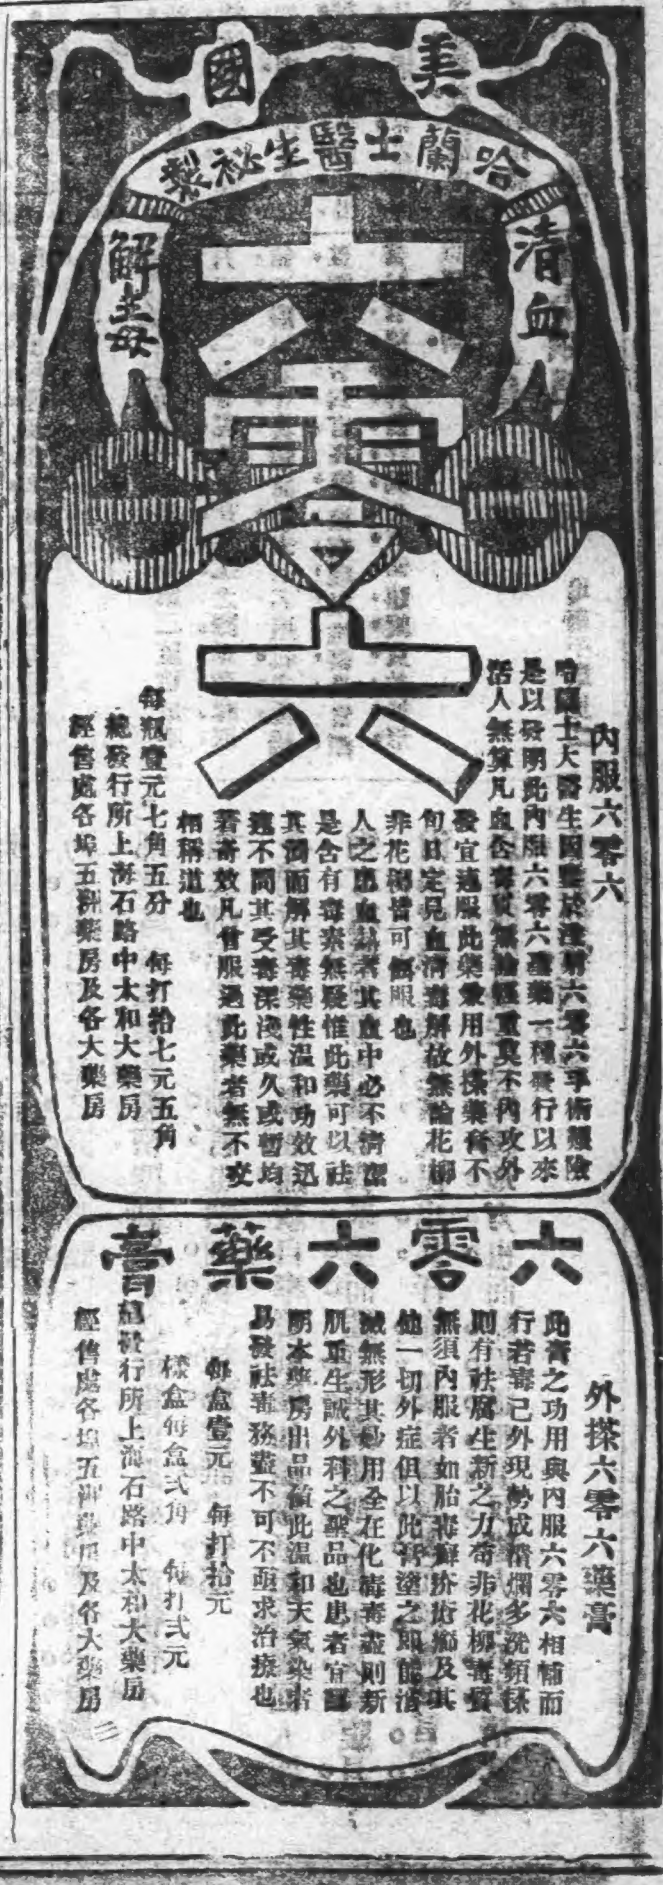 美國
哈蘭士醫生祕製
清血
解毒
六零六
內服六零六
哈蘭士大醫生因鑒於注射六零六手術艱險
是以發明此內服六零六聖藥一種發行以來
活人無算凡血含毒質無論輕重莫不內攻外
發宜速服此藥兼用外搽藥膏不
旬日定見血清毒解故無論花柳
非花柳皆可服也
人之患血熱者其血中必不清潔
是含有毒素無疑惟此藥可以祛
其濁而解其毒藥性温和功效迅
速不問其受毒深淺或久或暫均
著奇效凡曾服過此藥者無不交
相稱道也
每瓶壹元七角五分 每打拾七元五角
總發行所上海石路中太和大藥房
經售處各埠五洲藥房及各大藥房
六零六藥膏
外搽六零六藥膏
此膏之功用與內服六零六相輔而
行若毒已外現勢成潰爛多洗頻搽
則有祛腐生新之力苟非花柳毒質
無須內服者如胎毒癬疥瘡癤及其
他一切外症但以此膏塗之即能消
滅無形其妙用全在化毒毒盡則新
肌重生誠外科之聖品也患者宜認
明本藥房出品值此温和天氣染者
易發祛毒務盡不可不亟求治療也
每盒壹元 每打拾元
樣盒每盒弍角 每打弍元
總發行所上海石路中太和大藥房
經售處各埠五洲藥房及各大藥房